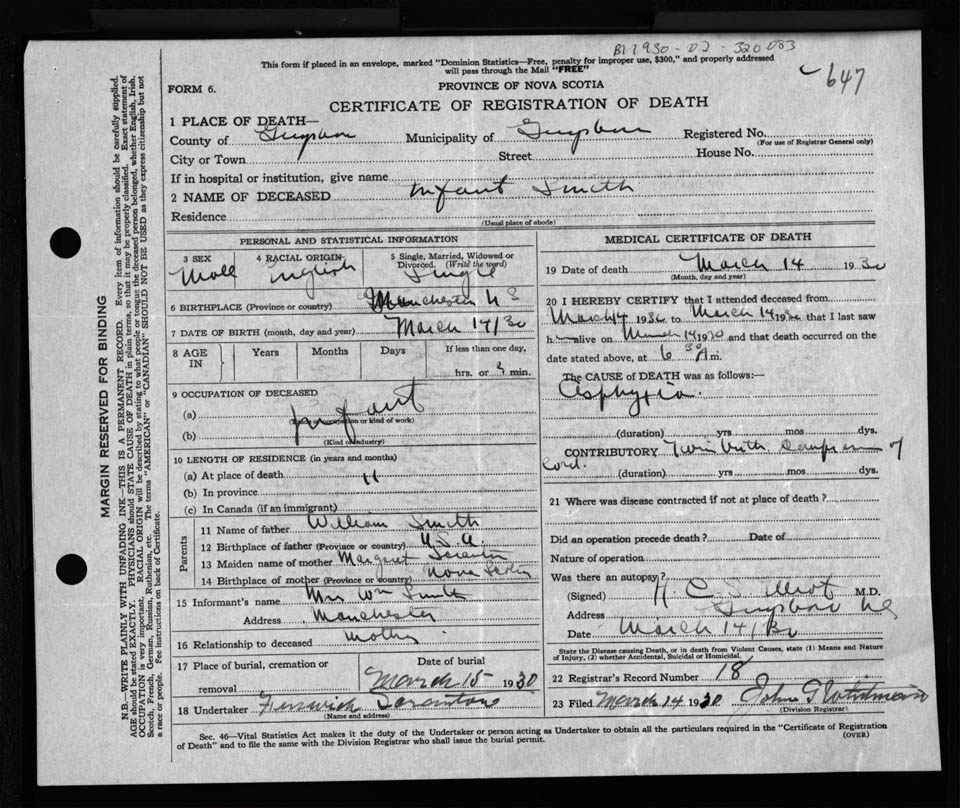 B11930-02-320083
This form if placed in an envelope, marked "Dominion Statistics—Free, penalty for improper use, $300," and properly addressed
will pass through the Mail "FREE"
647
FORM 6.
PROVINCE OF NOVA SCOTIA
CERTIFICATE OF REGISTRATION OF DEATH
1 PLACE OF DEATH—
County of Guysboro Municipality of Guysboro Registered No.
(For use of Registrar General only)
City or Town Street House No.
If in hospital or institution, give name
2 NAME OF DECEASED Infant Smith
Residence
(Usual place of abode)
PERSONAL AND STATISTICAL INFORMATION
3 SEX 4 RACIAL ORIGIN 5 Single, Married, Widowed or
Divorced. (Write the word)
Male English Single
6 BIRTHPLACE (Province or country) Manchester N S
7 DATE OF BIRTH (month, day and year) March 14/30
8 AGE IN Years Months Days If less than one day,
hrs. or min.
9 OCCUPATION OF DECEASED
(a) Infant
(Trade or occupation or kind of work)
(b)
(Kind of industry)
10 LENGTH OF RESIDENCE (in years and months)
(a) At place of death
(b) In province
(c) In Canada (if an immigrant)
Parents
11 Name of father William Smith
12 Birthplace of father (Province or country) U.S.A.
13 Maiden name of mother Margaret
14 Birthplace of mother (Province or country) Nova Scotia
15 Informant's name Mrs Wm Smith
Address Manchester
16 Relationship to deceased Mother
17 Place of burial, cremation or
removal
Date of burial
March 15 1930
18 Undertaker Fenwick Scranton
(Name and address)
MEDICAL CERTIFICATE OF DEATH
19 Date of death March 14 1930
(Month, day and year)
20 I HEREBY CERTIFY that I attended deceased from
March 14 1930 to March 14 1930 that I last saw
h alive on March 14 1930 and that death occurred on the
date stated above, at 6 30 A m.
The CAUSE OF DEATH was as follows:—
Asphyxia.
(duration) yrs mos dys.
CONTRIBUTORY Twin birth Compression of
Cord. (duration) yrs mos dys.
21 Where was disease contracted if not at place of death?
Did an operation precede death? Date of
Nature of operation
Was there an autopsy?
(Signed) M.D.
Address Guysboro NS
Date March 14/30
State the Disease causing Death, or in death from Violent Causes, state (1) Means and Nature
of Injury, (2) whether Accidental, Suicidal or Homicidal.
22 Registrar's Record Number 18
23 Filed March 14 1930 John
(Division Registrar)
Sec. 46—Vital Statistics Act makes it the duty of the Undertaker or person acting as Undertaker to obtain all the particulars required in the "Certificate of Registration
of Death" and to file the same with the Division Registrar who shall issue the burial permit.
(OVER)
MARGIN RESERVED FOR BINDING
N.B.—WRITE PLAINLY WITH UNFADING INK—THIS IS A PERMANENT RECORD. Every item of information should be carefully supplied.
AGE should be stated EXACTLY. PHYSICIANS should STATE CAUSE OF DEATH in plain terms, so that it may be properly classified. Exact statement of
OCCUPATION is very important. RACIAL ORIGIN will be described by stating to what people or tongue the deceased person belonged, whether English, Irish,
Scotch, French, German, Russian, Ruthenian, etc. The terms "AMERICAN" or "CANADIAN" SHOULD NOT BE USED as they express citizenship but not
a race or people. Fee instructions on back of Certificate.